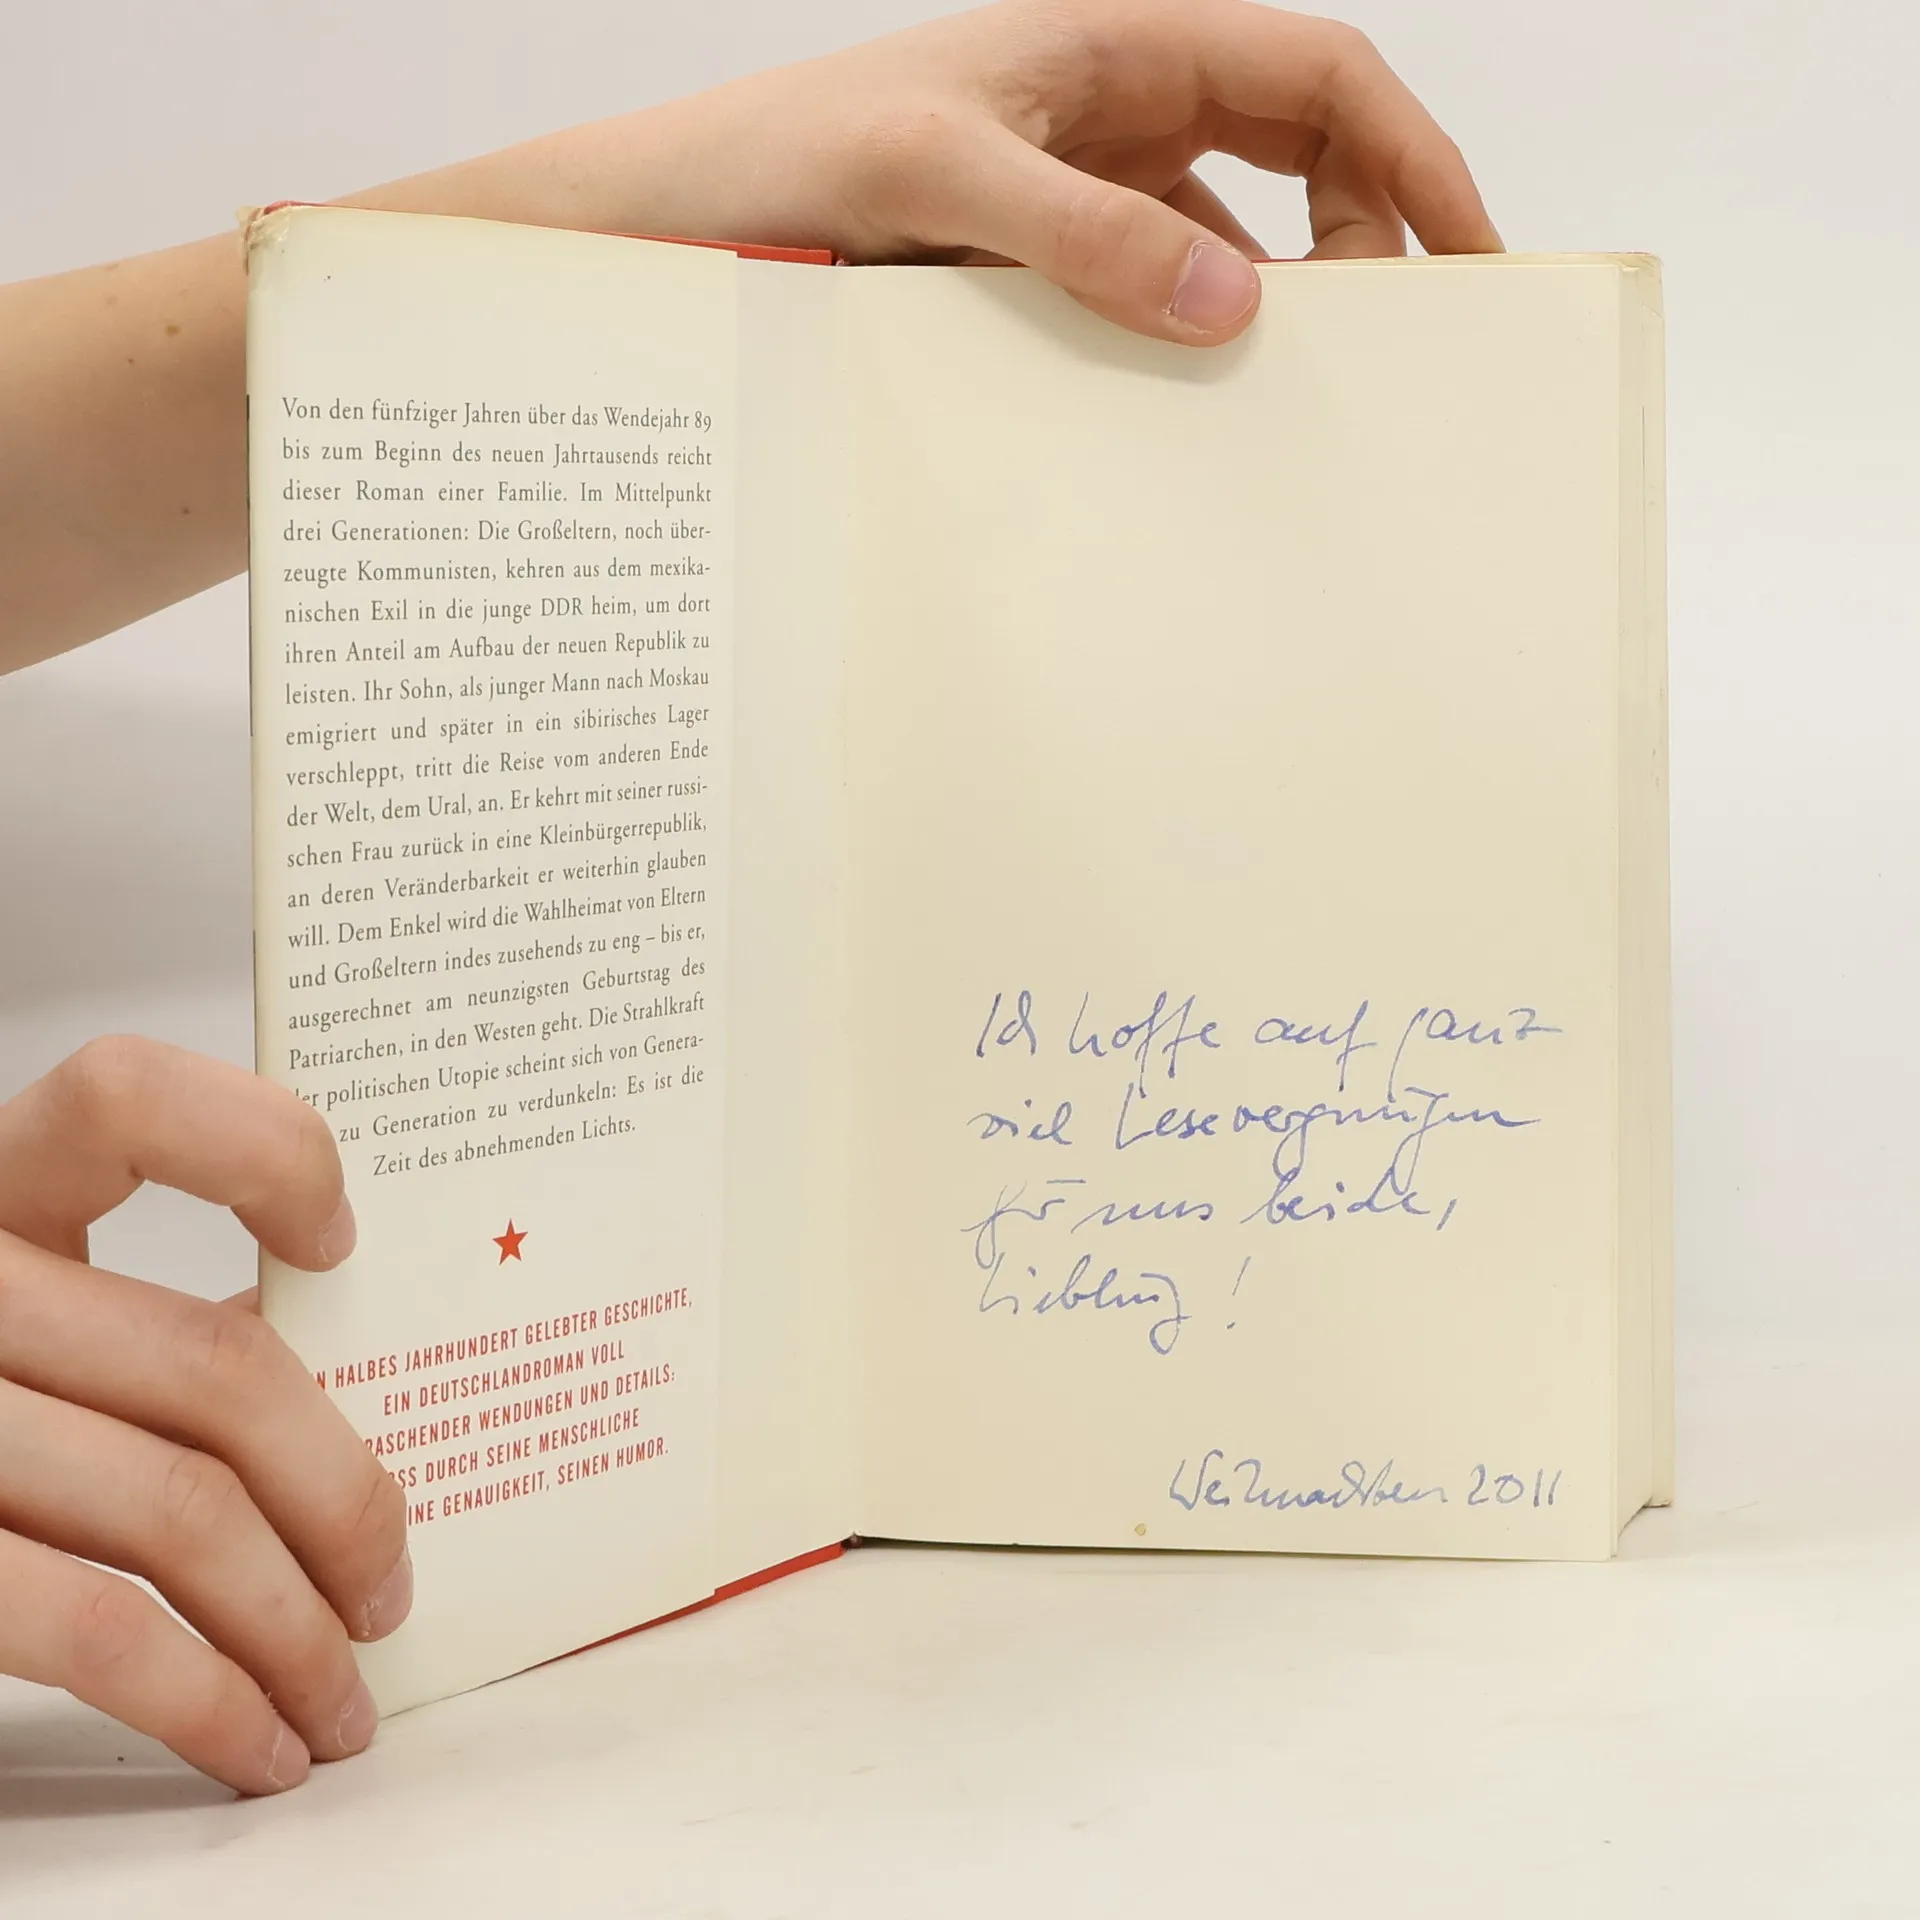 Von den fünfziger Jahren über das Wendejahr 89
bis zum Beginn des neuen Jahrtausends reicht
dieser Roman einer Familie. Im Mittelpunkt
drei Generationen: Die Großeltern, noch über-
zeugte Kommunisten, kehren aus dem mexika-
nischen Exil in die junge DDR heim, um dort
ihren Anteil am Aufbau der neuen Republik zu
leisten. Ihr Sohn, als junger Mann nach Moskau
emigriert und später in ein sibirisches Lager
verschleppt, tritt die Reise vom anderen Ende
der Welt, dem Ural, an. Er kehrt mit seiner russi-
schen Frau zurück in eine Kleinbürgerrepublik,
an deren Veränderbarkeit er weiterhin glauben
will. Dem Enkel wird die Wahlheimat von Eltern
und Großeltern indes zusehends zu eng – bis er,
ausgerechnet am neunzigsten Geburtstag des
Patriarchen, in den Westen geht. Die Strahlkraft
der politischen Utopie scheint sich von Genera-
zu Generation zu verdunkeln: Es ist die
Zeit des abnehmenden Lichts.
HALBES JAHRHUNDERT GELEBTER GESCHICHTE,
EIN DEUTSCHLANDROMAN VOLL
RASCHENDER WENDUNGEN UND DETAILS:
SS DURCH SEINE MENSCHLICHE
INE GENAUIGKEIT, SEINEN HUMOR.
Ich hoffe auf ganz
viel Lesevergnügen
für uns beide,
Liebling!
Weihnachten 2011